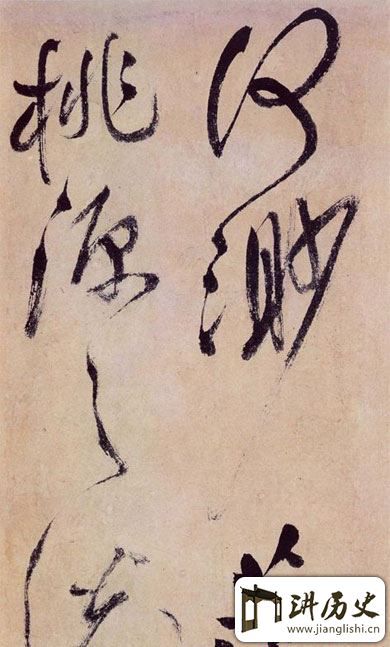 何渺茫
桃源之説
讲历史
www.jianglishi.cn